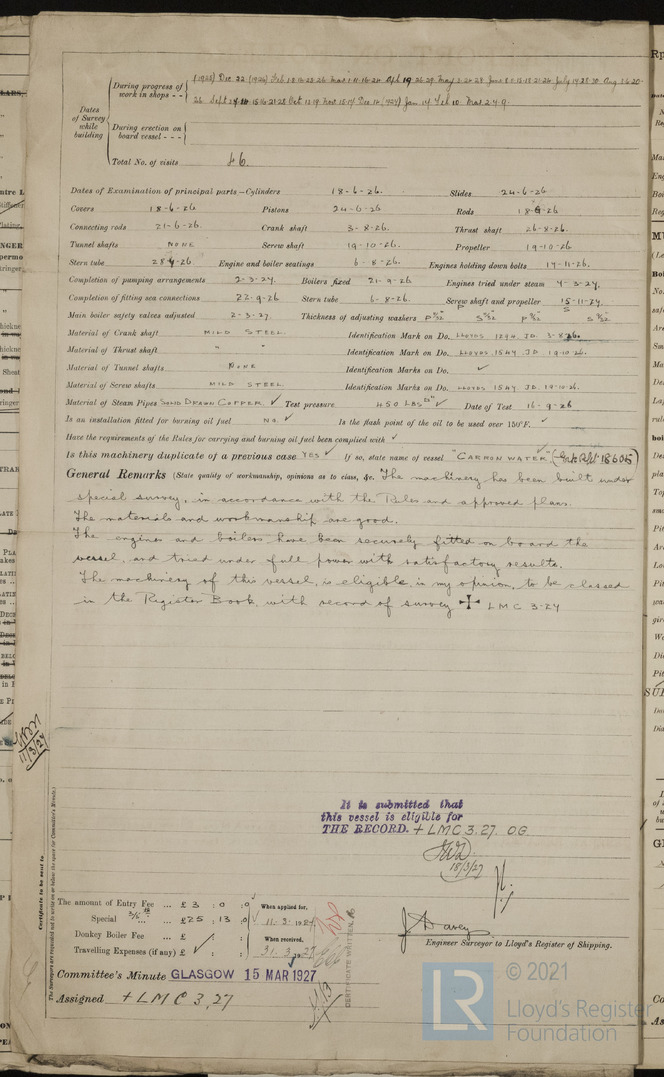 During progress of work in shops - - (1925) Dec 22 (1926) Feb 1·8·16·23·26 Mar 1·11·16·24 Apl 19·26·29 May 1·24·28 June 8·11·15·18·21·24 July 19·28·30 Aug 16·20
26 Sept 15·16·21·28 Oct 12·19 Nov 15·17 Dec 14 (1927) Jan 14 Feb 10 Mar 2·4·9
Dates of Survey while building
During erection on board vessel - - -
Total No. of visits 46.
Dates of Examination of principal parts—Cylinders 18-6-26. Slides 24-6-26
Covers 18-6-26 Pistons 24-6-26 Rods 18-6-26
Connecting rods 21-6-26. Crank shaft 3-8-26. Thrust shaft 26-8-26.
Tunnel shafts NONE Screw shaft 19-10-26. Propeller 19-10-26
Stern tube Engine and boiler seatings 6-8-26. Engines holding down bolts 17-11-26.
Completion of pumping arrangements 2-3-27. Boilers fixed 21-9-26 Engines tried under steam 4-3-27.
Completion of fitting sea connections 22-9-26 Stern tube 6-8-26. Screw shaft and propeller 15-11-27.
Main boiler safety valves adjusted 2-3-27. Thickness of adjusting washers
Material of Crank shaft MILD STEEL. Identification Mark on Do. LLOYDS 1294 JD. 3-8-26.
Material of Thrust shaft " " Identification Mark on Do. LLOYDS 1547 JD 19-10-26.
Material of Tunnel shafts NONE Identification Marks on Do. ✓
Material of Screw shafts MILD STEEL. Identification Marks on Do. LLOYDS 1547 JD. 19-10-26.
Material of Steam Pipes SOLID DRAWN COPPER. ✓ Test pressure 450 LBS □" ✓ Date of Test 16-9-26
Is an installation fitted for burning oil fuel NO. ✓ Is the flash point of the oil to be used over 150°F. ✓
Have the requirements of the Rules for carrying and burning oil fuel been complied with ✓
Is this machinery duplicate of a previous case YES ✓ If so, state name of vessel "CARRON WATER" (Rpt 18605)
General Remarks (State quality of workmanship, opinions as to class, &c. The machinery has been built under
special survey, in accordance with the Rules and approved plans.
The materials and workmanship are good.
The engines and boilers have been securely fitted on board the
vessel, and tried under full power with satisfactory results.
The machinery of this vessel, is eligible, in my opinion, to be classed
in the Register Book, with record of survey + LMC 3-27
11/3/27
Certificate to be sent to
The Surveyors are requested not to write on or below the space for Committee's Minute.)
It is submitted that
this vessel is eligible for
THE RECORD. + LMC 3.27. OG.
18/3/27
The amount of Entry Fee ... £ 3 : 0 : 0 When applied for,
Special ... ... £25 : 13 : 0 11-3-1927
Donkey Boiler Fee ... £ : : When received,
Travelling Expenses (if any) £ ✓ : : 31.3.1927
CERTIFICATE WRITTEN.
J Davey
Engineer Surveyor to Lloyd's Register of Shipping.
Committee's Minute GLASGOW 15 MAR 1927
Assigned + LMC 3,27
LR © 2021
Lloyd's Register
Foundation